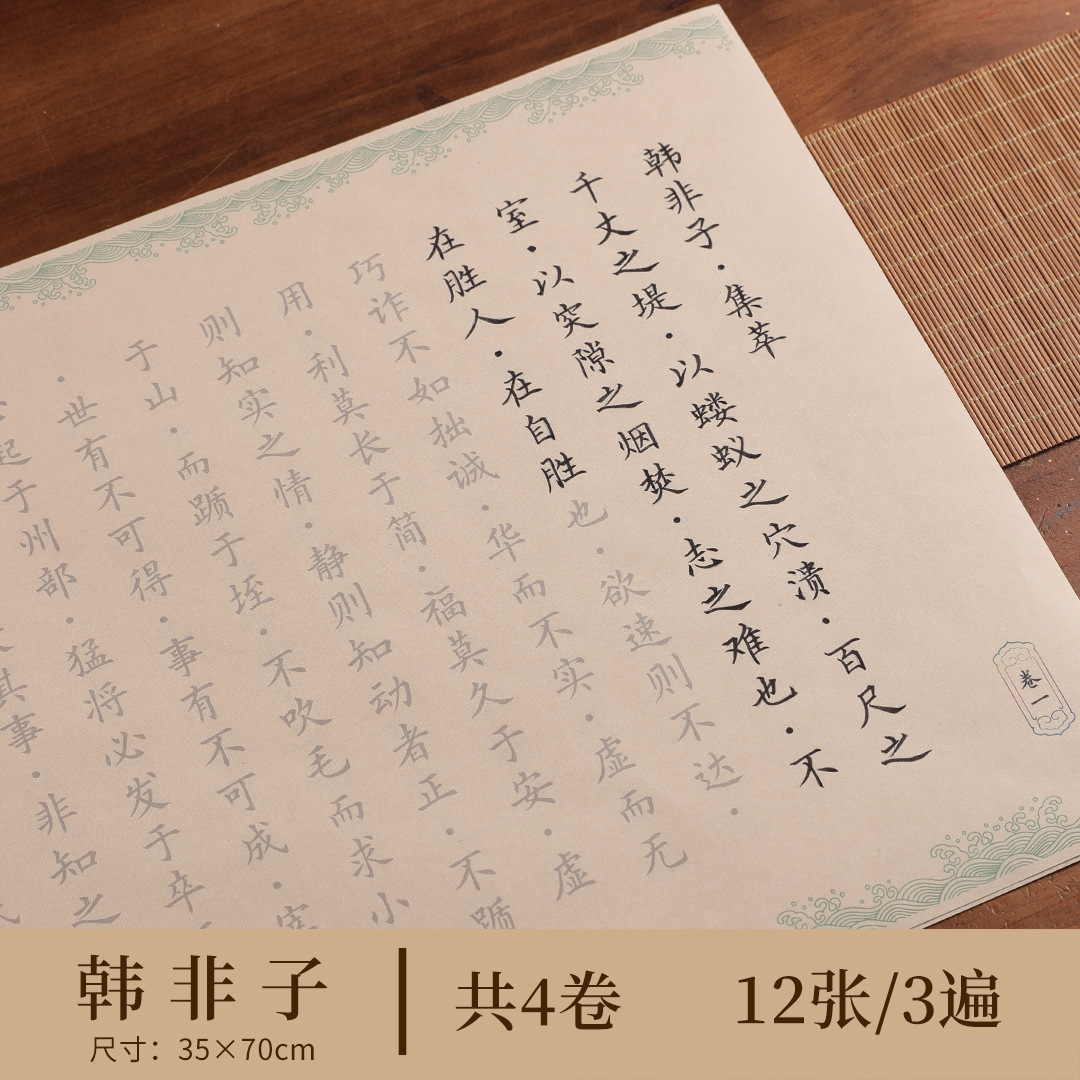 韩非子·集萃
千丈之堤·以蝼蚁之穴溃·百尺之
室·以突隙之烟焚·志之难也·不
在胜人·在自胜也·欲速则不达·
巧诈不如拙诚·华而不实·虚而无
用·利莫长于简·福莫久于安·虚
则知实之情·静则知动者正·不踬
于山·而踬于垤·不吹毛而求小
·世有不可得·事有不可成·宰
起于州部·猛将必发于卒
其事·非知之
卷一
韩非子
尺寸：35×70cm
共4卷
12张/3遍